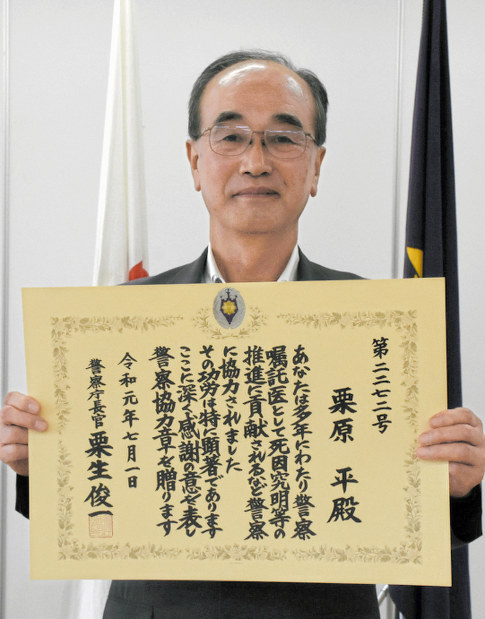 第二二七二号
栗原平殿
あなたは多年にわたり警察
嘱託医として死因究明等の
推進に貢献されるなど警察
に協力されました
その功労は特に顕著であります
ここに深く感謝の意を表し
警察協力章を贈ります
令和元年七月一日
警察庁長官 栗生俊一